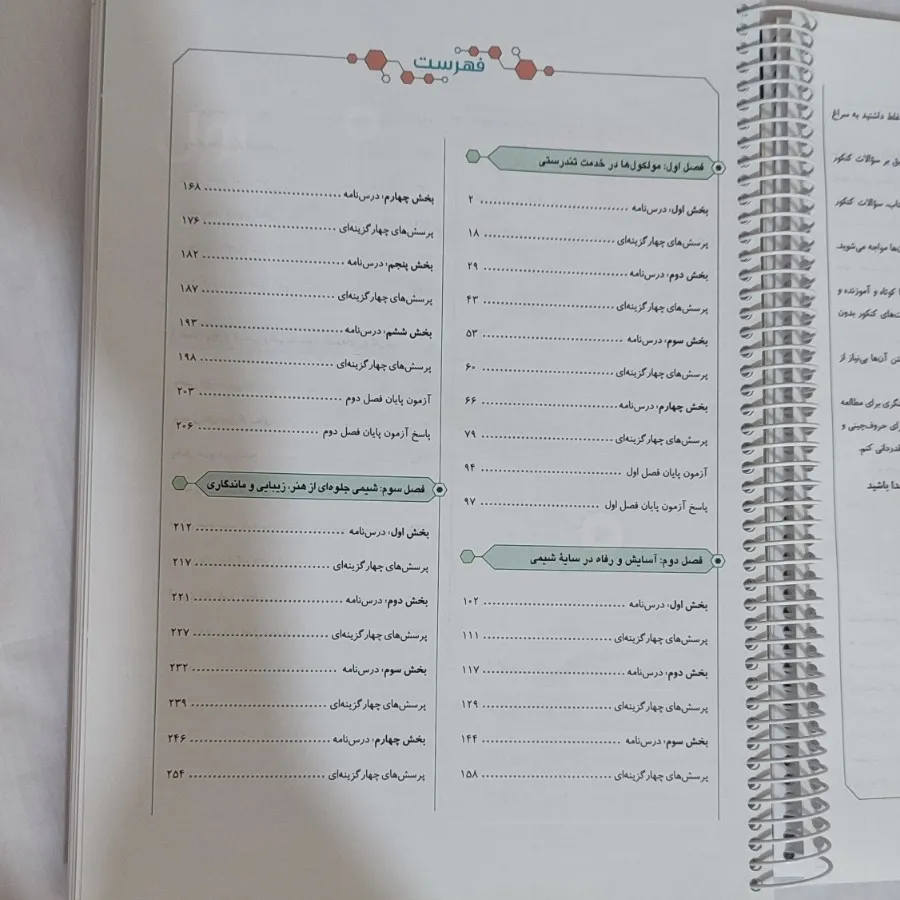 فهرست
فصل اول: مولکول‌ها در خدمت تندرستی
بخش اول: درس‌نامه ........ ۲
پرسش‌های چهارگزینه‌ای ........ ۱۸
بخش دوم: درس‌نامه ........ ۲۹
پرسش‌های چهارگزینه‌ای ........ ۴۳
بخش سوم: درس‌نامه ........ ۵۳
پرسش‌های چهارگزینه‌ای ........ ۶۰
بخش چهارم: درس‌نامه ........ ۶۶
پرسش‌های چهارگزینه‌ای ........ ۷۹
آزمون پایان فصل اول ........ ۹۴
پاسخ آزمون پایان فصل اول ........ ۹۷
فصل دوم: آسایش و رفاه در سایۀ شیمی
بخش اول: درس‌نامه ........ ۱۰۲
پرسش‌های چهارگزینه‌ای ........ ۱۱۱
بخش دوم: درس‌نامه ........ ۱۱۷
پرسش‌های چهارگزینه‌ای ........ ۱۲۹
بخش سوم: درس‌نامه ........ ۱۴۴
پرسش‌های چهارگزینه‌ای ........ ۱۵۸
بخش چهارم: درس‌نامه ........ ۱۶۸
پرسش‌های چهارگزینه‌ای ........ ۱۷۶
بخش پنجم: درس‌نامه ........ ۱۸۲
پرسش‌های چهارگزینه‌ای ........ ۱۸۷
بخش ششم: درس‌نامه ........ ۱۹۳
پرسش‌های چهارگزینه‌ای ........ ۱۹۸
آزمون پایان فصل دوم ........ ۲۰۳
پاسخ آزمون پایان فصل دوم ........ ۲۰۶
فصل سوم: شیمی جلوه‌ای از هنر، زیبایی و ماندگاری
بخش اول: درس‌نامه ........ ۲۱۲
پرسش‌های چهارگزینه‌ای ........ ۲۱۷
بخش دوم: درس‌نامه ........ ۲۲۱
پرسش‌های چهارگزینه‌ای ........ ۲۲۷
بخش سوم: درس‌نامه ........ ۲۳۲
پرسش‌های چهارگزینه‌ای ........ ۲۳۹
بخش چهارم: درس‌نامه ........ ۲۴۶
پرسش‌های چهارگزینه‌ای ........ ۲۵۴
داشتید به سراغ
بر سؤالات کنکور
سؤالات کنکور
مواجه می‌شوید.
کوتاه و آموزنده و
کنکور بدون
آن‌ها بی‌نیاز از
برای مطالعه
حروف‌چینی و
قدردانی کنم.
باشید